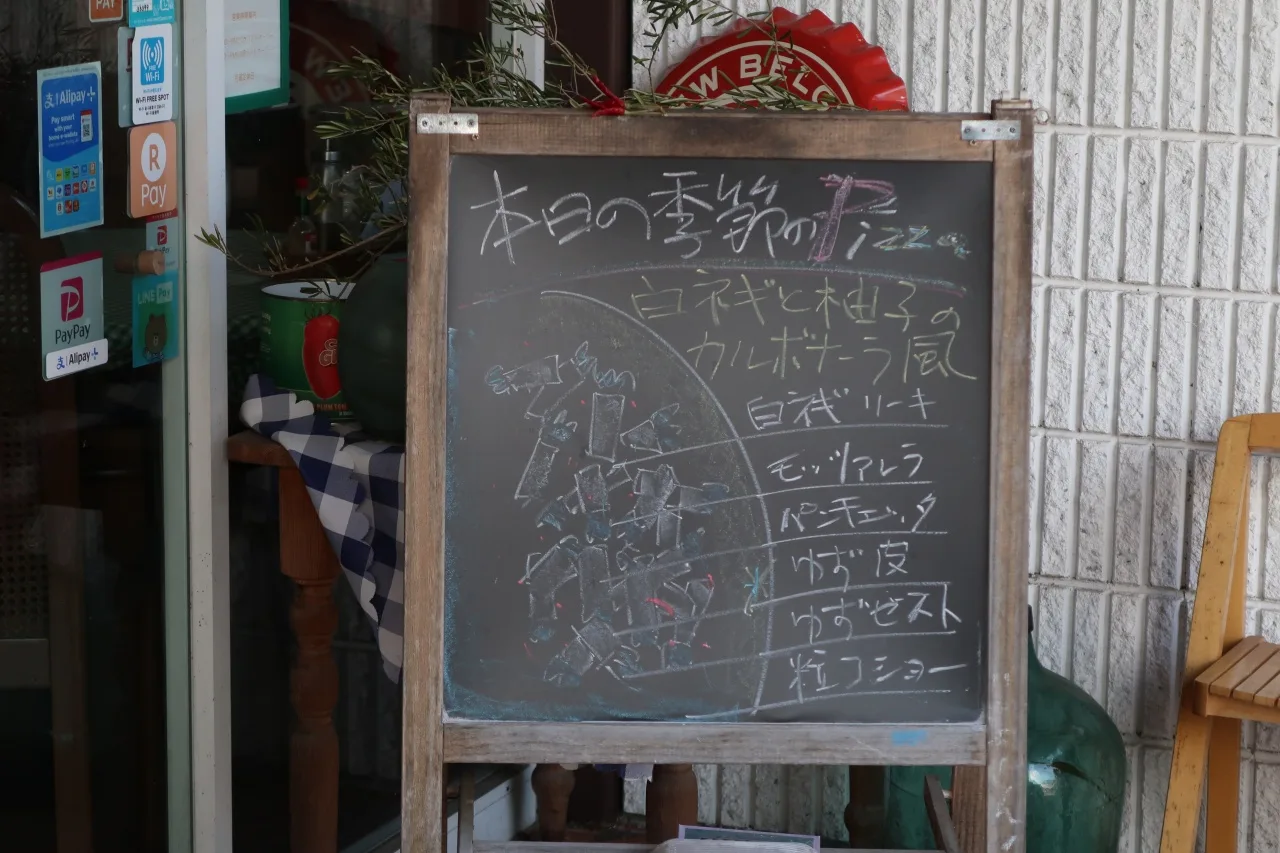 PAY
Wi-Fi
Wi-Fi FREE SPOT
支 Alipay+
Pay smart
with your
home e-wallets
R
Pay
P
PayPay
支 Alipay+
LINE Pay
W BELG
本日の季節のPizza
白ネギと柚子の
カルボナーラ風
白ネギ リーキ
モッツァレラ
パンチェッタ
ゆず皮
ゆずゼスト
粒コショー